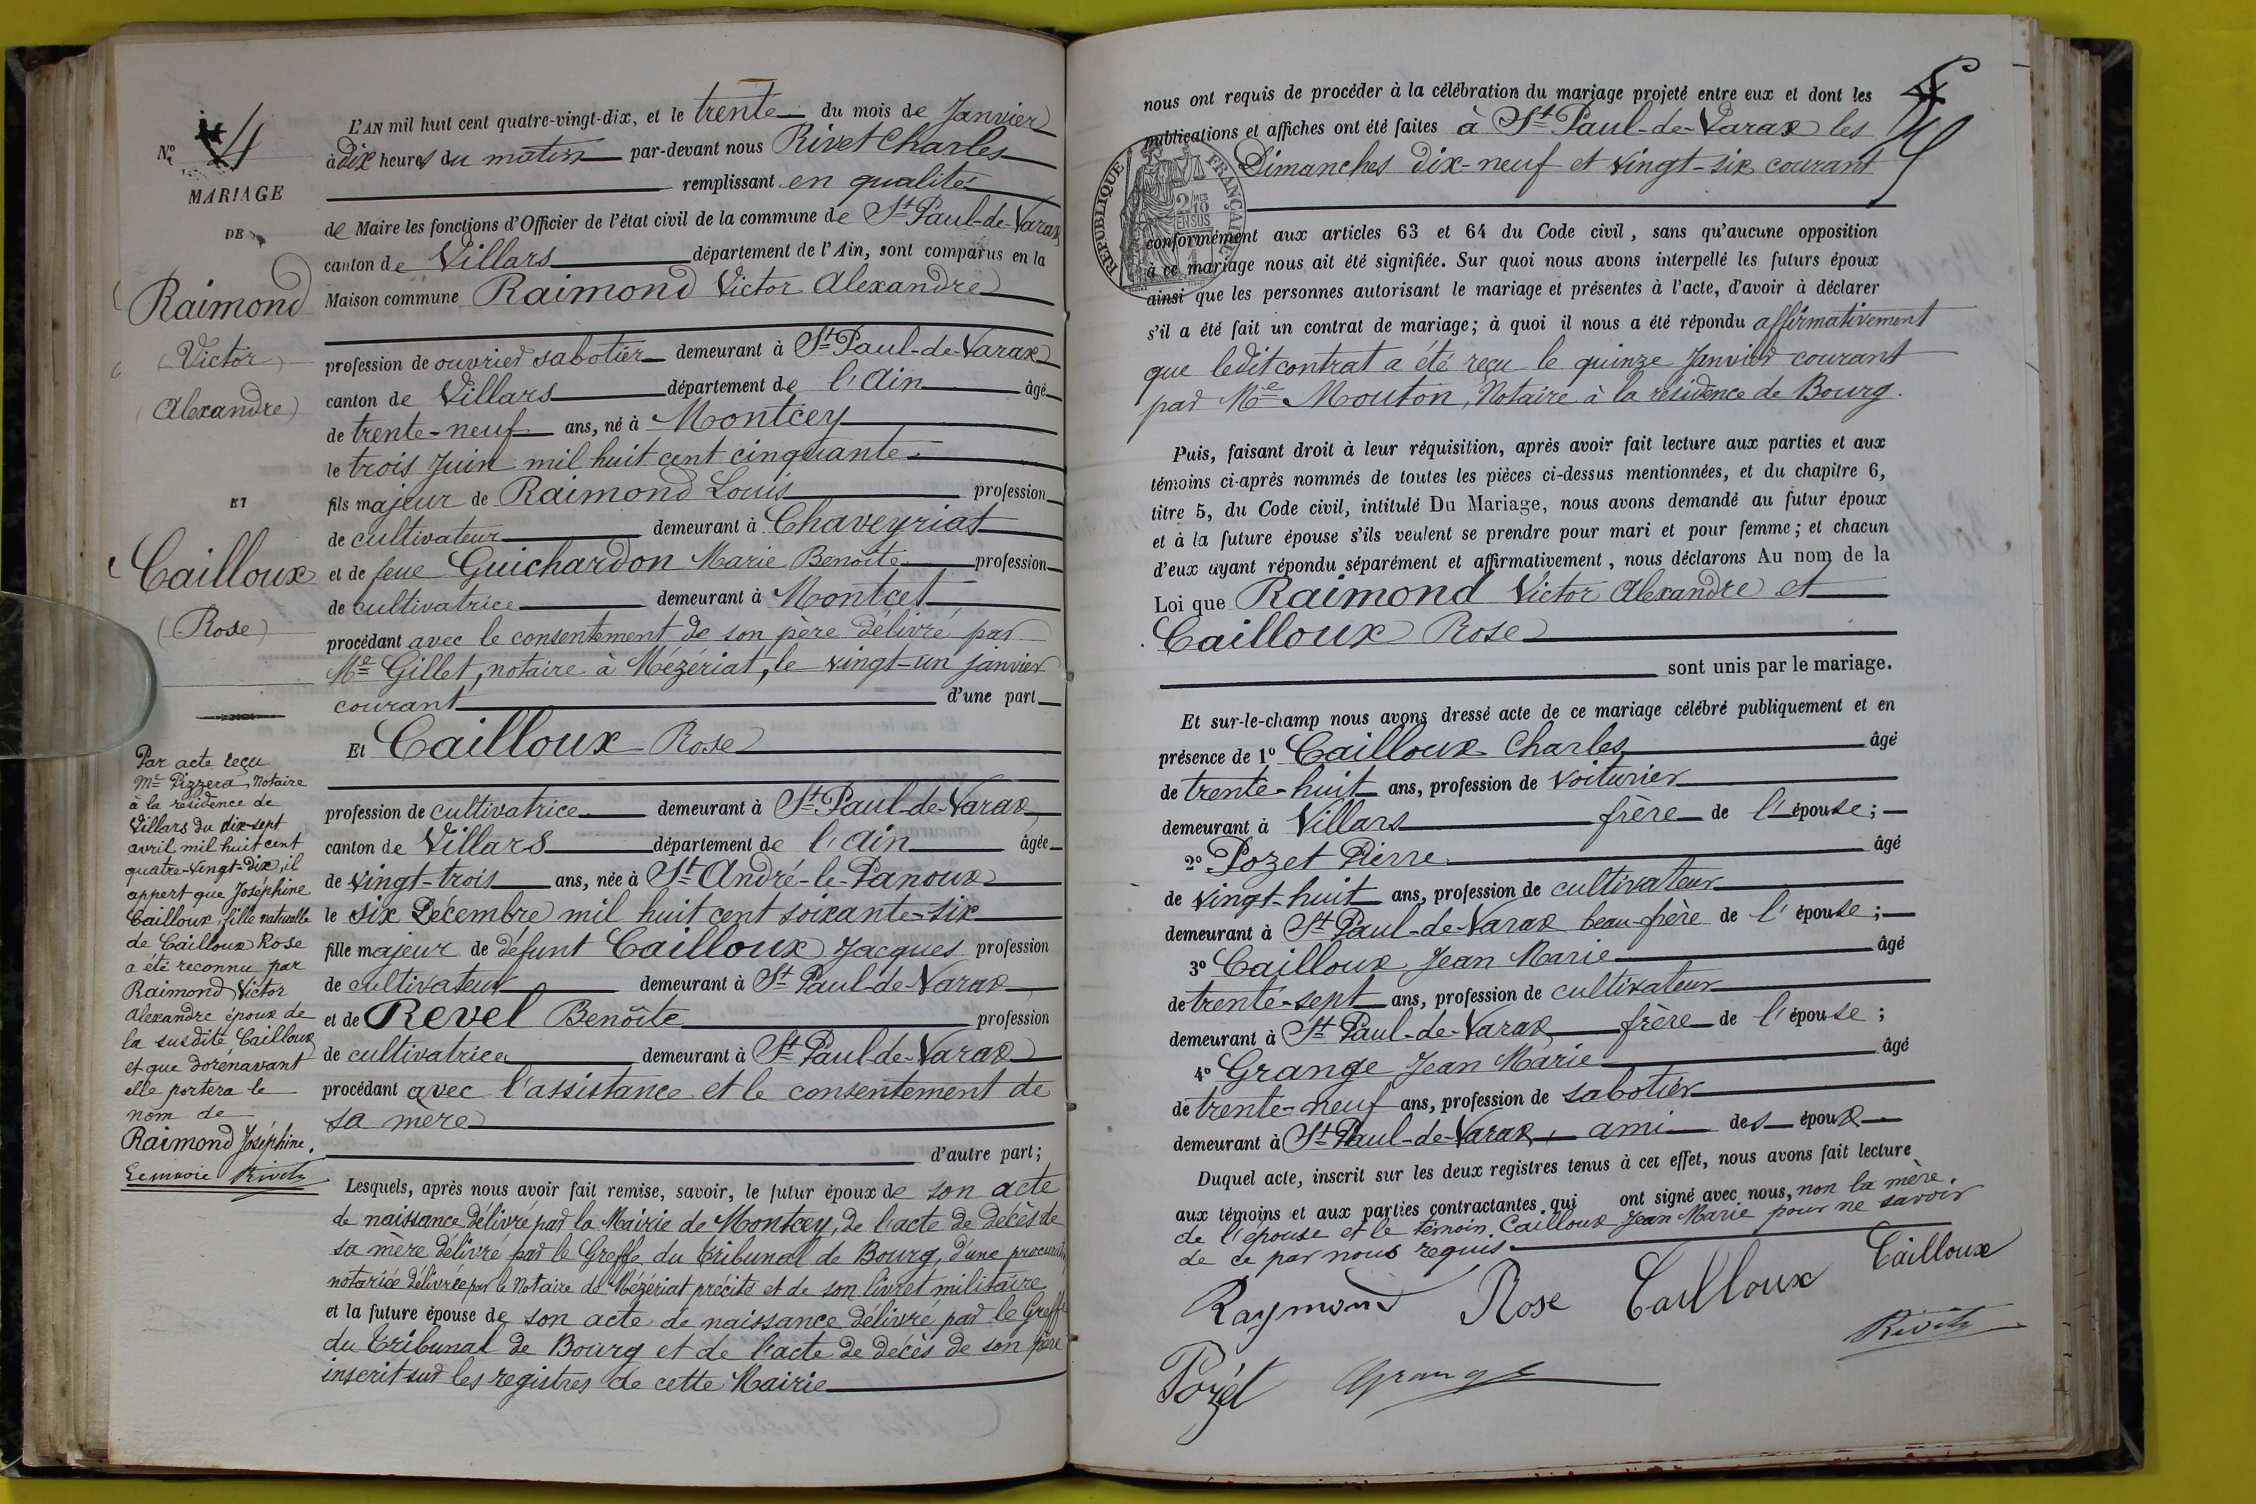 N° 4
MARIAGE
DE
Raimond
(Victor)
(Alexandre)
ET
Cailloux
(Rose)
Par acte reçu
Me Pizzera, Notaire
à la résidence de
Villars du dix-sept
avril mil huit cent
quatre-vingt-dix, il
appert que Joséphine
Cailloux fille naturelle
de Cailloux Rose
a été reconnu par
Raimond Victor
Alexandre époux de
la susdite Cailloux
et que dorénavant
elle portera le
nom de
Raimond Joséphine.
Le maire Rivet
L'AN mil huit cent quatre-vingt-dix, et le trente du mois de Janvier
à dix heures du matin par-devant nous Rivet Charles
remplissant en qualité
de Maire les fonctions d'Officier de l'état civil de la commune de St Paul-de-Varax
canton de Villars département de l'Ain, sont comparus en la
Maison commune Raimond Victor Alexandre
profession de ouvrier sabotier demeurant à St Paul-de-Varax
canton de Villars département de l'Ain âgé
de trente-neuf ans, né à Montcey
le trois Juin mil huit cent cinquante
fils majeur de Raimond Louis profession
de cultivateur demeurant à Chaveyriat
et de feue Guichardon Marie Benoîte profession
de cultivatrice demeurant à Montcet
procédant avec le consentement de son père délivré par
Me Gillet, notaire à Mézériat, le vingt-un janvier
courant d'une part
Et Cailloux Rose
profession de cultivatrice demeurant à St Paul-de-Varax
canton de Villars département de l'Ain âgée
de vingt-trois ans, née à St André-le-Panoux
le six Décembre mil huit cent soixante-six
fille majeur de défunt Cailloux Jacques profession
de cultivateur demeurant à St Paul-de-Varax
et de Revel Benôite profession
de cultivatrice demeurant à St Paul-de-Varax
procédant avec l'assistance et le consentement de
sa mère
d'autre part;
Lesquels, après nous avoir fait remise, savoir, le futur époux de son acte
de naissance délivré par la Mairie de Montcey, de l'acte de décès de
sa mère délivré par le Greffe du tribunal de Bourg, d'une procuration
notariée délivrée par le Notaire de Mézériat précité et de son livret militaire
et la future épouse de son acte de naissance délivré par le Greffe
du tribunal de Bourg et de l'acte de décès de son père
inscrit sur les registres de cette Mairie
nous ont requis de procéder à la célébration du mariage projeté entre eux et dont les
publications et affiches ont été faites à St Paul-de-Varax les
Dimanches dix-neuf et vingt-six courant
RÉPUBLIQUE FRANÇAISE
2/10 EN SUS
conformément aux articles 63 et 64 du Code civil, sans qu'aucune opposition
à ce mariage nous ait été signifiée. Sur quoi nous avons interpellé les futurs époux
ainsi que les personnes autorisant le mariage et présentes à l'acte, d'avoir à déclarer
s'il a été fait un contrat de mariage; à quoi il nous a été répondu affirmativement
que ledit contrat a été reçu le quinze Janvier courant
par Me Mouton, Notaire à la résidence de Bourg.
Puis, faisant droit à leur réquisition, après avoir fait lecture aux parties et aux
témoins ci-après nommés de toutes les pièces ci-dessus mentionnées, et du chapitre 6,
titre 5, du Code civil, intitulé Du Mariage, nous avons demandé au futur époux
et à la future épouse s'ils veulent se prendre pour mari et pour femme; et chacun
d'eux ayant répondu séparément et affirmativement, nous déclarons Au nom de la
Loi que Raimond Victor Alexandre et
Cailloux Rose
sont unis par le mariage.
Et sur-le-champ nous avons dressé acte de ce mariage célébré publiquement et en
présence de 1° Cailloux Charles âgé
de trente-huit ans, profession de voiturier
demeurant à Villars frère de l'épouse;
2° Pozet Pierre âgé
de vingt-huit ans, profession de cultivateur
demeurant à St Paul-de-Varax beau-frère de l'épouse;
3° Cailloux Jean Marie âgé
de trente-sept ans, profession de cultivateur
demeurant à St Paul-de-Varax frère de l'épouse;
4° Grange Jean Marie âgé
de trente-neuf ans, profession de sabotier
demeurant à St Paul-de-Varax, ami des époux
Duquel acte, inscrit sur les deux registres tenus à cet effet, nous avons fait lecture
aux témoins et aux parties contractantes qui ont signé avec nous, non la mère
de l'épouse et le témoin Cailloux Jean Marie pour ne savoir
de ce par nous requis.
Raymond Rose Cailloux Cailloux
Rivet
Pozet Grange